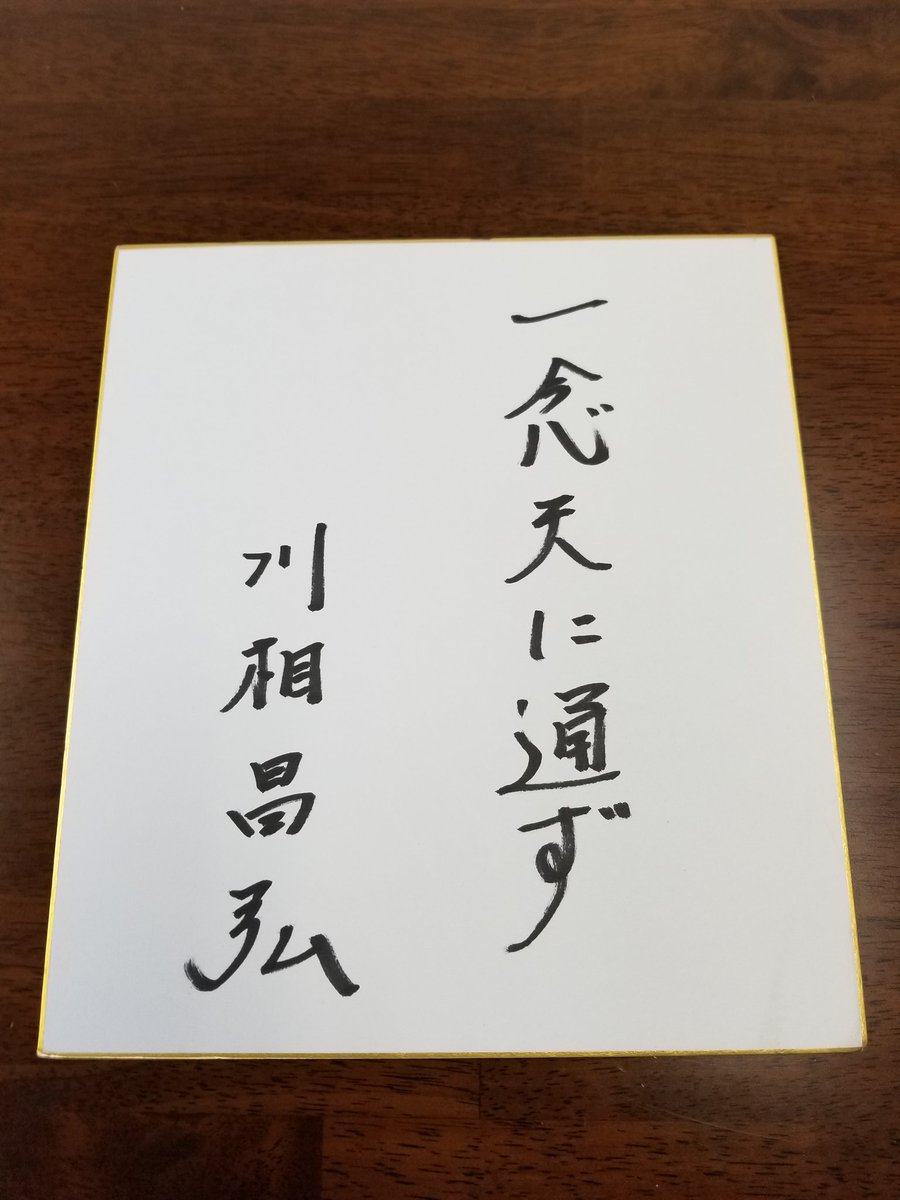 一念天に通ず
川相昌弘